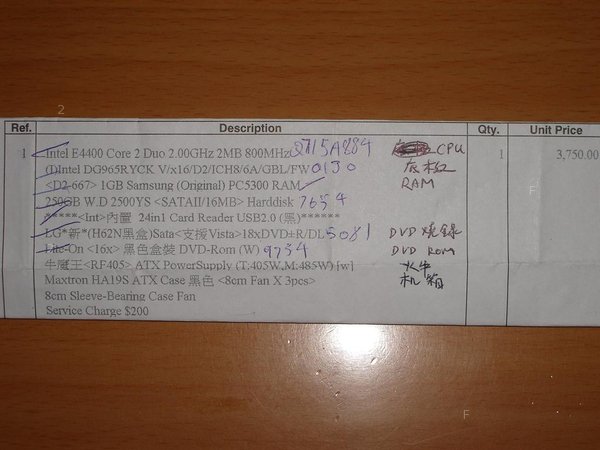 2
Ref. Description Qty. Unit Price
1 Intel E4400 Core 2 Duo 2.00GHz 2MB 800MHz Q715A884 CPU 1 3,750.00
(D)Intel DG965RYCK V/x16/D2/ICH8/6A/GBL/FW 0130 底板
<D2-667> 1GB Samsung (Original) PC5300 RAM RAM
250GB W.D 2500YS <SATAII/16MB> Harddisk 7654 F
*****<Int>內置 24in1 Card Reader USB2.0 (黑)******
LG*新*(H62N黑盒)Sata<支援Vista>18xDVD±R/DL 5081 DVD 燒錄
Lite-On <16x> 黑色盒裝 DVD-Rom (W) 9754 DVD ROM
牛魔王<RF405> ATX PowerSupply (T:405W,M:485W) [w] 火牛
Maxtron HA19S ATX Case 黑色 <8cm Fan X 3pcs> 机箱
8cm Sleeve-Bearing Case Fan
Service Charge $200
F